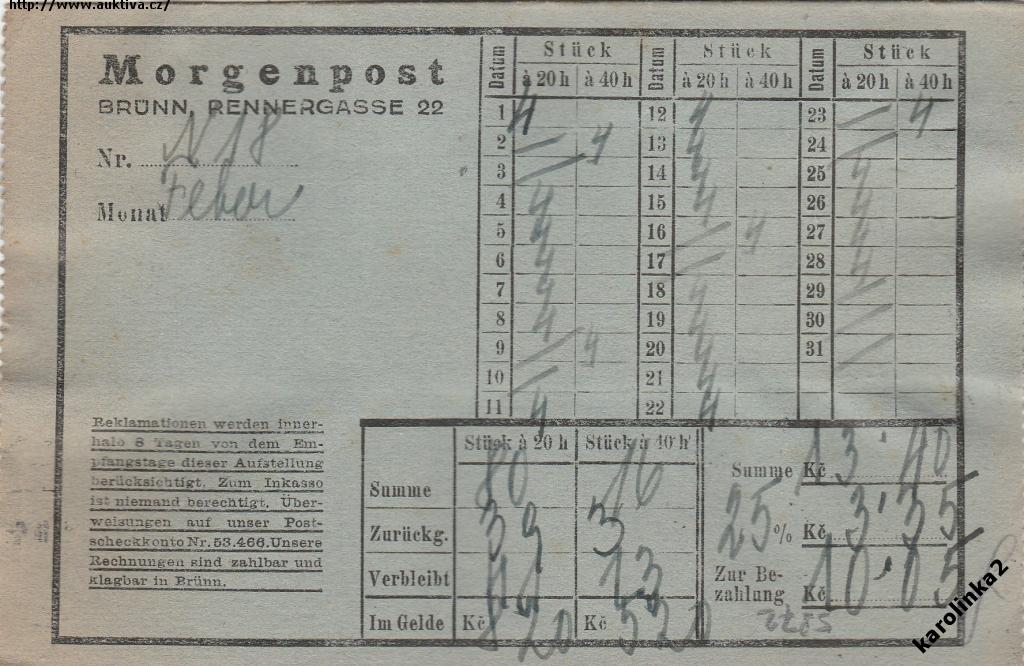 http://www.auktiva.cz/
Morgenpost
BRÜNN, RENNERGASSE 22
Nr. 
Monat Feber
Datum Stück Datum Stück Datum Stück
à 20 h à 40 h à 20 h à 40 h à 20 h à 40 h
1 4 12 4 23 — 4
2 — 4 13 4 24 —
3 — 14 4 25 4
4 4 15 4 26 4
5 4 16 — 4 27 4
6 4 17 — 28 4
7 4 18 4 29 —
8 4 19 4 30 —
9 — 4 20 4 31 —
10 — 21 4
11 4 22 4
Reklamationen werden inner-
halb 8 Tagen von dem Em-
pfangstage dieser Aufstellung
berücksichtigt. Zum Inkasso
ist niemand berechtigt. Über-
weisungen auf unser Post-
scheckkonto Nr. 53.466. Unsere
Rechnungen sind zahlbar und
klagbar in Brünn.
Stück à 20 h Stück à 40 h
Summe 80 16
Zurückg. 39 3
Verbleibt 41 13
Im Gelde Kč 8 20 Kč 5 20
Summe Kč 13·40
25 % Kč 3·35
Zur Be-
zahlung Kč 10·05
karolinka2